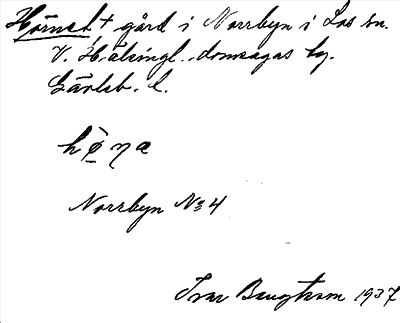 Hörnet + gård i Norrbyn i Los sn.
V. Hälsingl. domsagas tg.
Gävleb. l.
Norrbyn № 4
Ivar Bengtsson 1937